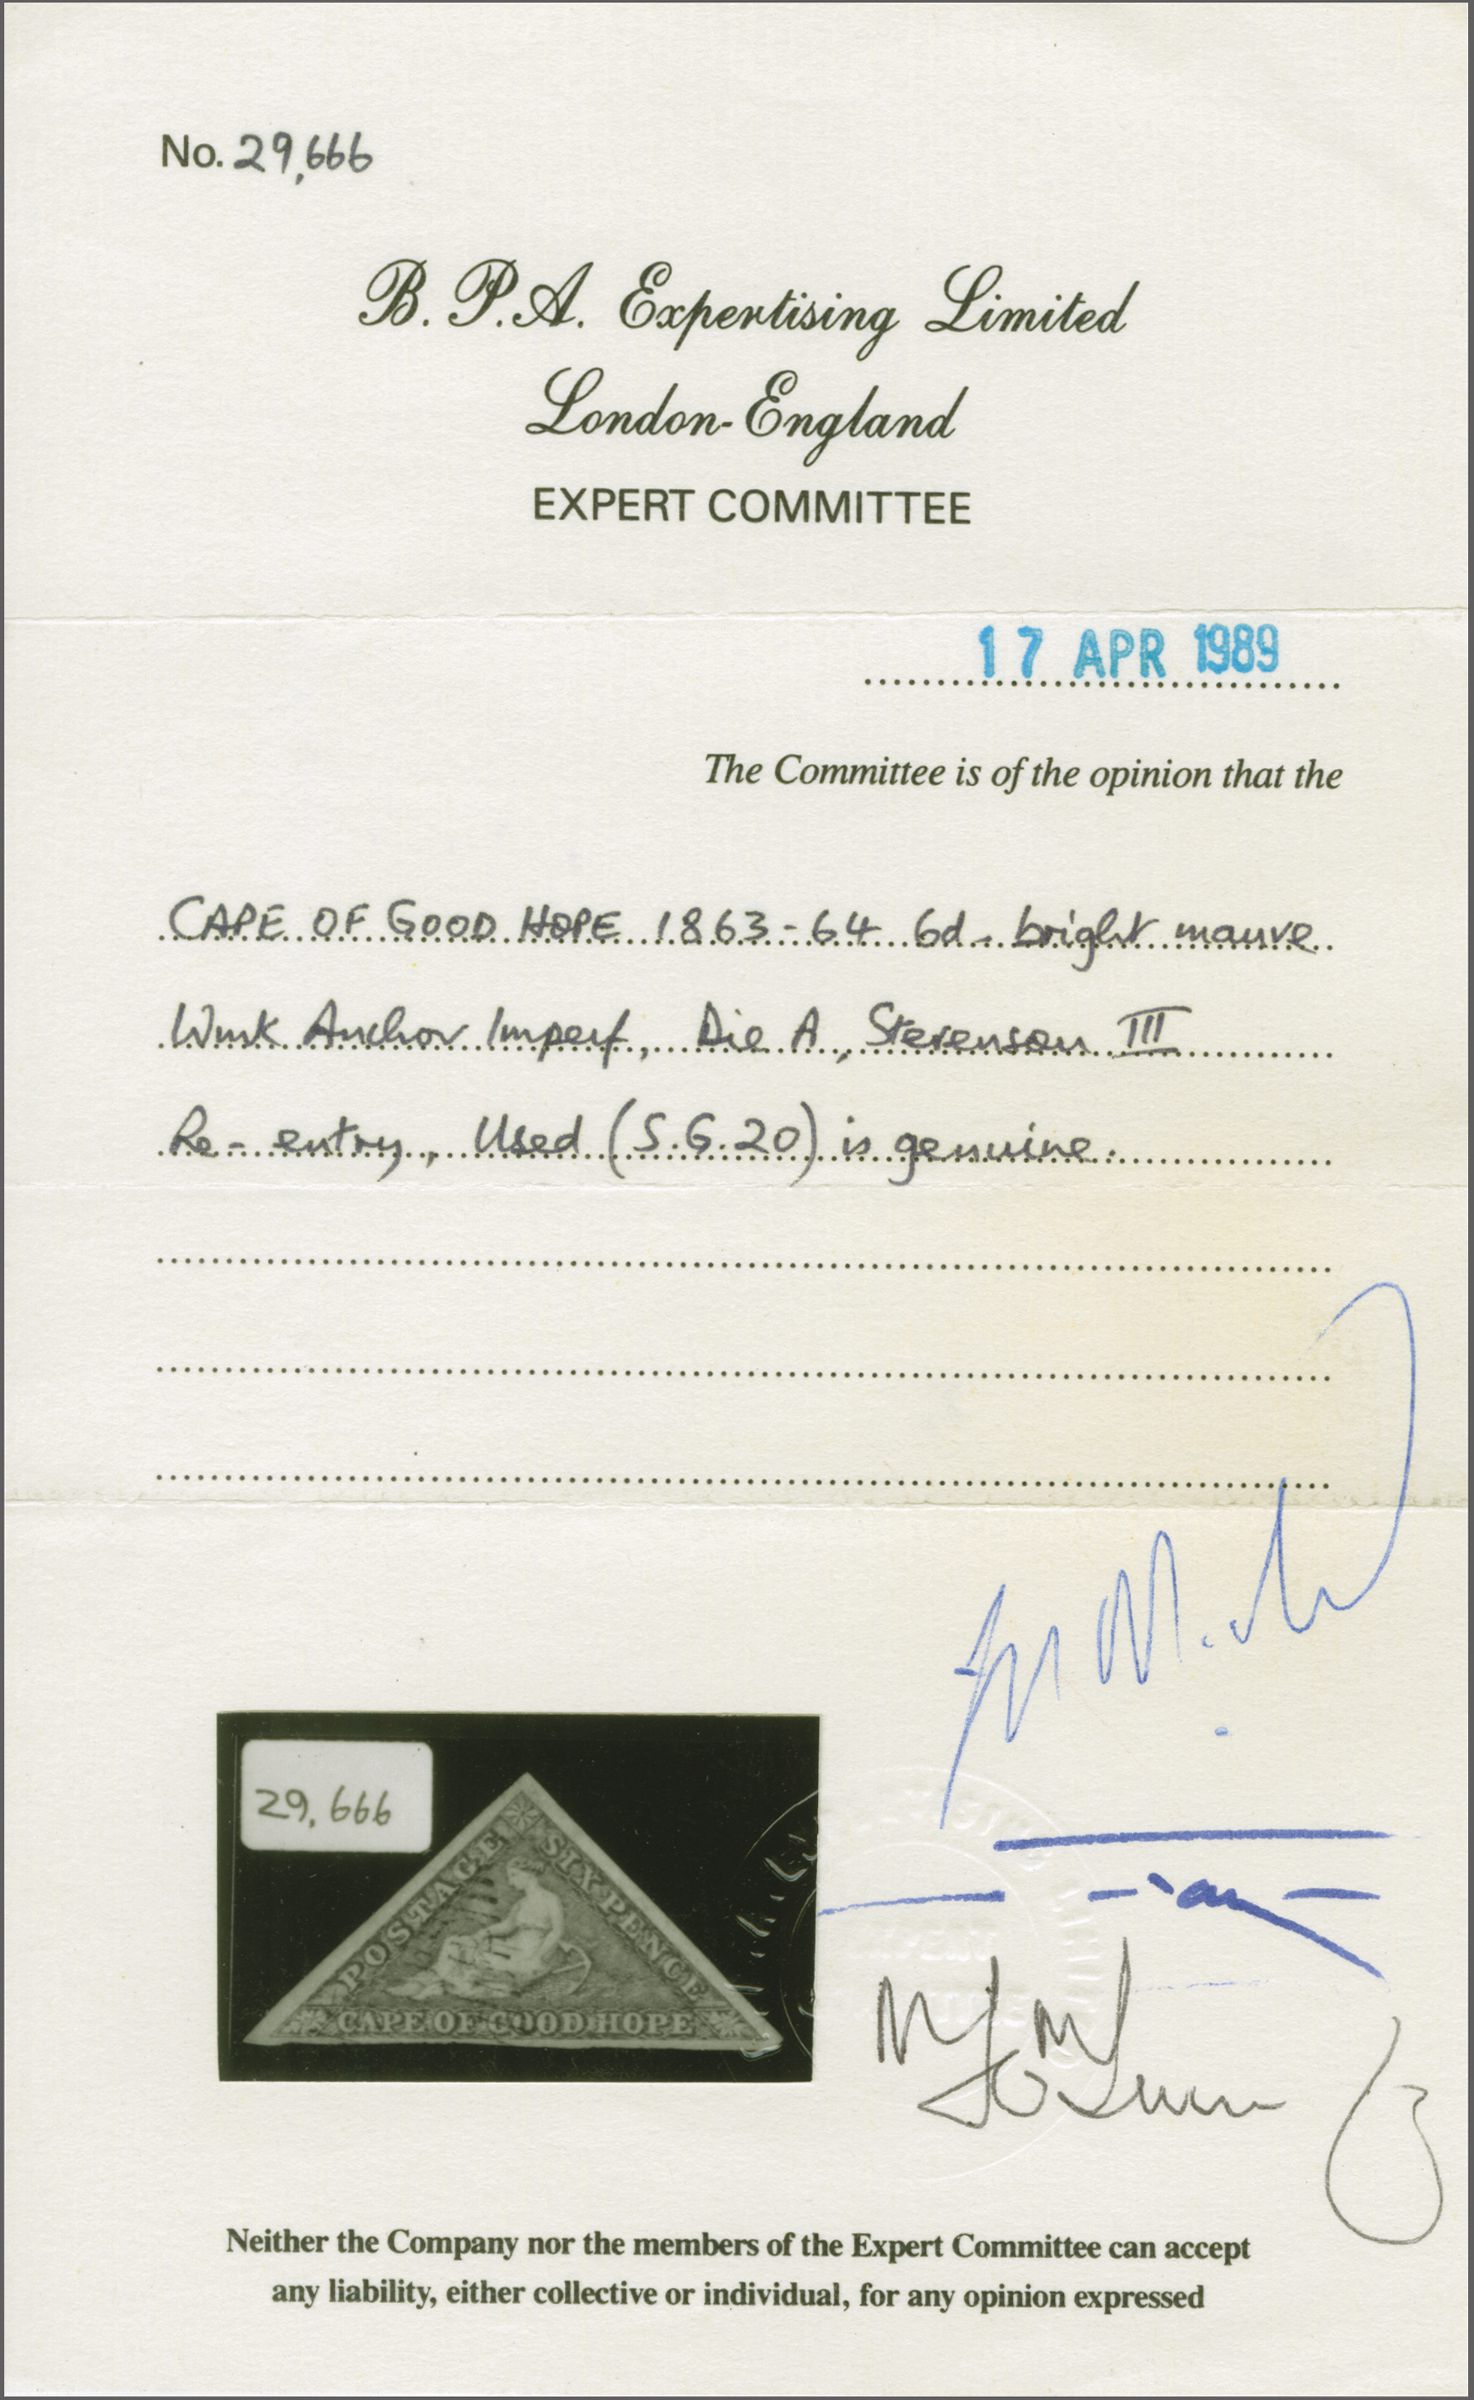 No. 29,666
B. P. A. Expertising Limited
London-England
EXPERT COMMITTEE
17 APR 1989
The Committee is of the opinion that the
CAPE OF GOOD HOPE 1863-64 6d. bright mauve
Wmk Anchor Imperf, Die A, Stevenson III
Re-entry, Used (S.G.20) is genuine.
29,666
POSTAGE
SIX PENCE
CAPE OF GOOD HOPE
Neither the Company nor the members of the Expert Committee can accept
any liability, either collective or individual, for any opinion expressed